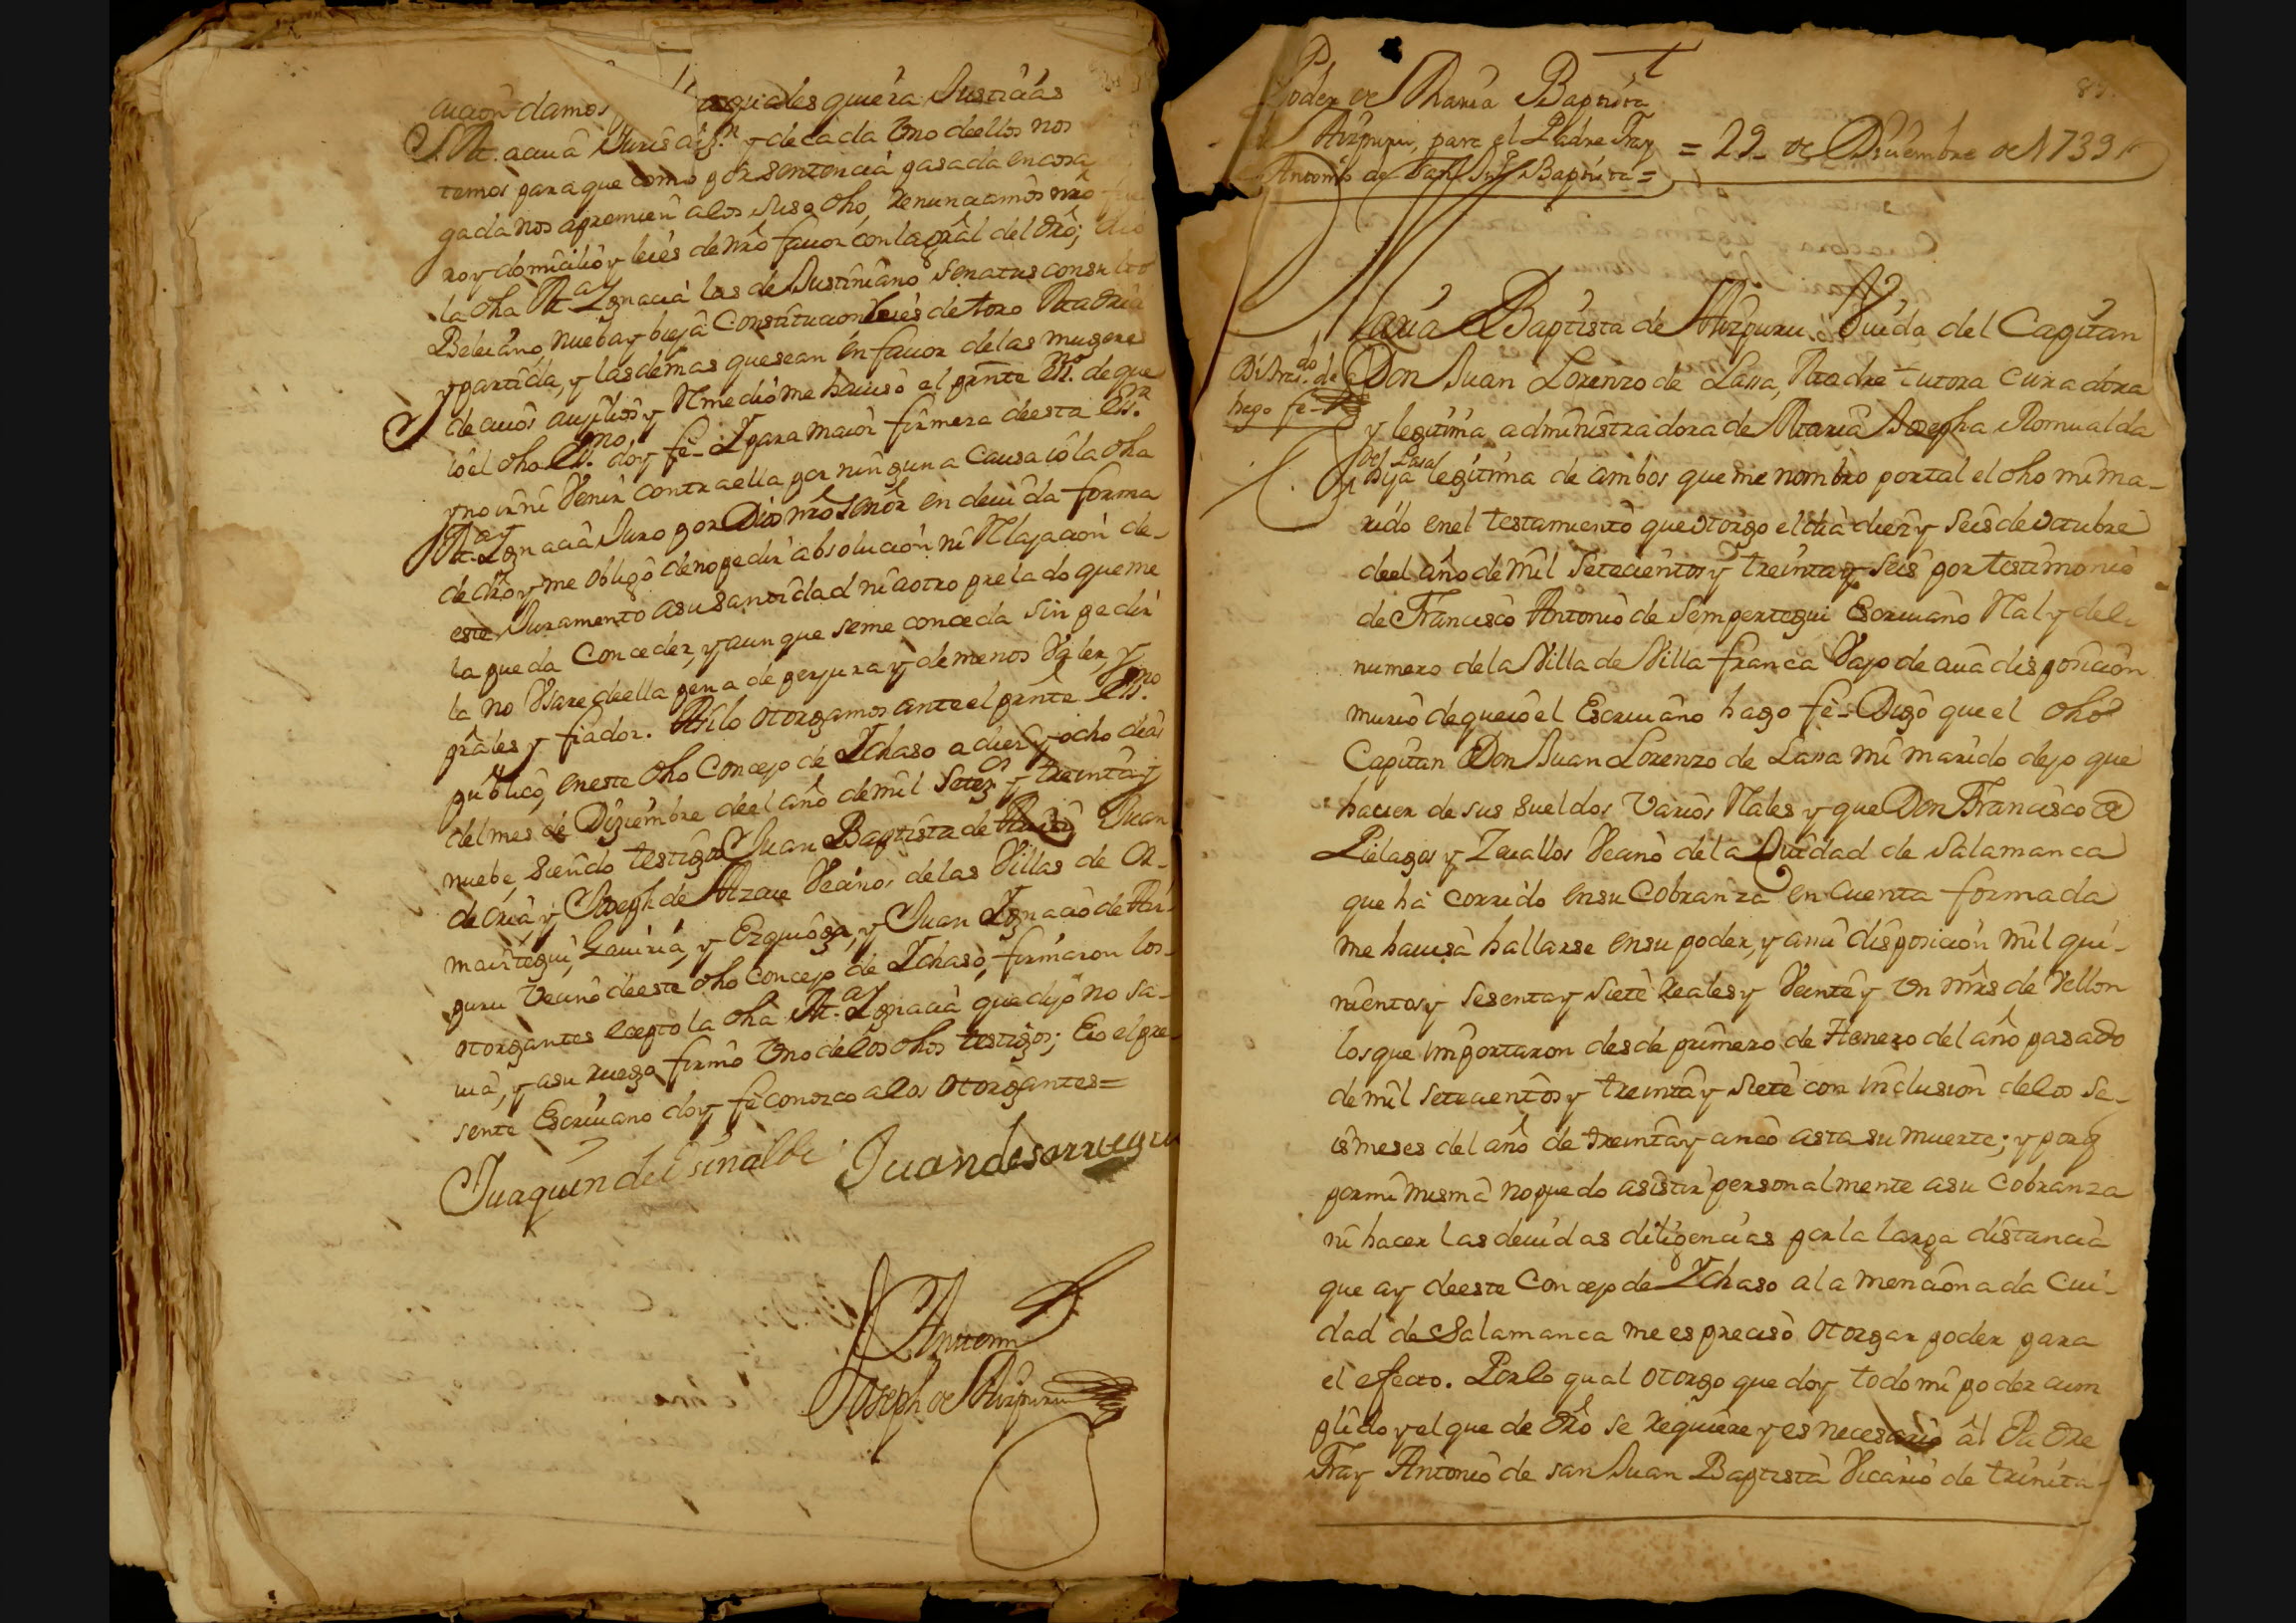 cucion damos aqualesquiera Justicias
S. M. acuia Jurisdizn. y de cada Uno deellos nos
temos para que como por sentencia pasada en cosa
gada nos apremien a los suso dho, Renunciamos nrô
ro y domicilio y leies de nrô fauor con la grâl del drô;
la dha Ma. Ignacia las de Justiniano Senatus consulto
Beleiano, nueba y bieja Constitucion leies de toro Madrid
y partida, y las demas que sean en fauor de las mugeres
de cuios auxilios y Remedio me hauisò el prnte Essno. de que
io el dho Essno. doy fê - Y para maior firmeza deesta Essra.
y no ir ni Venir contra ella por ninguna causa io la dha
Ma. Ignacia Juro por Dios nrô Señor en deuida forma
de drô y me obligo de no pedir absolucion ni Relajacion de-
este Juramento a su santidad ni a otro prelado que me
la pueda Conceder, y aunque seme conceda sin pedir
la no Usare deella pena de perjura y de menos Valer, y
grâles y fiador. Asilo otorgamos ante el prnte Essno.
publico, en este dho Concejo de Ychaso a diez y ocho dias
del mes de Diziembre deel año de mil setezos. y treinta y
nuebe, siendo testigos Juan Baptista de Juan
de Oria, y Joseph de Alzaue Vecinos de las Villas de Or-
maiztegui, Gauiria, y Ezquioga, y Juan Ygnacio de Au-
puru Vecino deeste dho Concejo de Ychaso, firmaron los-
otorgantes ecepto la dha Ma. Ygnacia que dijo no sa-
uia, y a su ruego firmo Uno de los dhos testigos; E io el pre-
sente Escriuano doy fê conozco a los otorgantes=
Juaquin de Esinalbe Juan de sarruegui
Antemi
Joseph de Aizpuru
Poder de Maria Baptista
de Aizpuru, para el Padre Fray
Antonio de San Jun Baptista =
= 29 de Diciembre de 1739
Maria Baptista de Aizpuru Viuda del Capitan
Don Juan Lorenzo de Lasa, Madre tutora curadora
y legitima administradora de Maria Josepha Romualda
de Lasa
hija legitima de ambos que me nombrò por tal el dho mi ma-
rido en el testamento que otorgo el dia diez y seis de octubre
deel año de mil setecientos y treinta y seis por testimonio
de Francisco Antonio de Sempertegui Escriuano Real y del
numero de la Villa de Villa franca Vajo de cuia disposicion
murio de que io el Escriuano hago fê - Digo que el dho
Capitan Don Juan Lorenzo de Lasa mi marido dejo que
hauer de sus sueldos Varios Reales y que Don Francisco de
Pielagos y Zeuallos Vecino de la Ciudad de Salamanca
que hà corrido en su Cobranza en cuenta formada
me hauisa hallarse en su poder, y a mi disposicion mil qui-
nientos y sesenta y siete Reales y Veinte y Un mrs de Vellon
los que importaron desde primero de Henero del año pasado
de mil setecientos y treinta y siete con inclusion de los se-
is meses del año de treinta y cinco asta su muerte; y porq
por mi misma no puedo asistir personalmente a su Cobranza
ni hacer las deuidas diligencias por la larga distancia
que ay deeste Concejo de Ychaso a la mencionada Ciu-
dad de Salamanca me es preciso otorgar poder para
el efecto. Por lo qual otorgo que doy todo mi poder cum
plido y el que de drô se requiere y es necesario âl Padre
Fray Antonio de san Juan Baptista Vicario de trinita-
hago fê